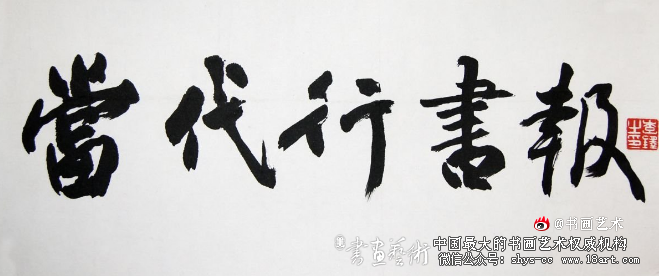 當代行書報
@书画艺术
書画藝術
中国最大的书画艺术权威机构
微信公众号：shys-cc www.18art.com